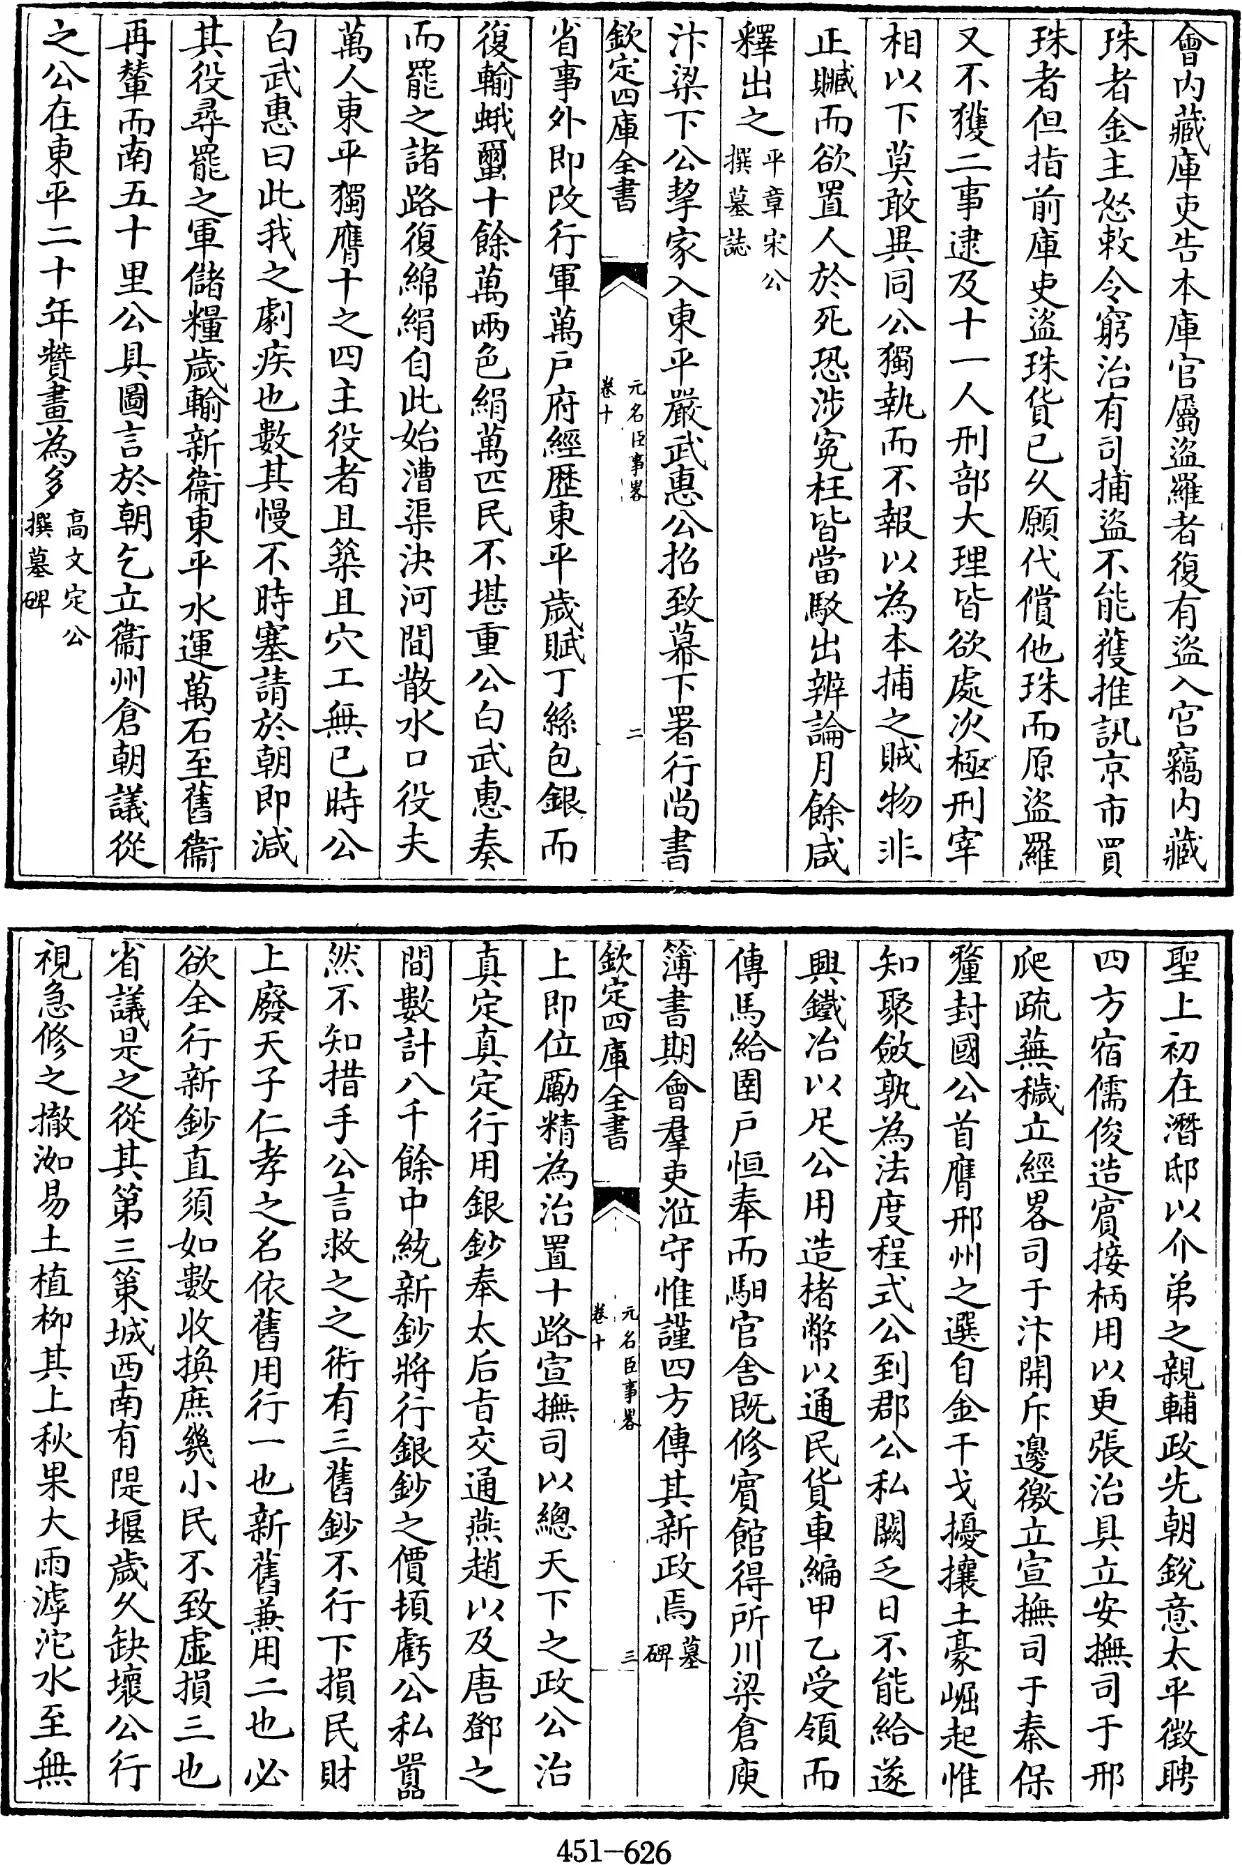 會內藏庫吏告本庫官屬盜羅者復有盜入宮竊內藏
珠者金主怒敕令窮治有司捕盜不能獲推訊京市買
珠者但指前庫吏盜珠貨已久願代償他珠而原盜羅
又不獲二事逮及十一人刑部大理皆欲處次極刑宰
相以下莫敢異同公獨執而不報以為本捕之賊物非
正贓而欲置人於死恐涉寃枉皆當駁出辨論月餘咸
釋出之平章宋公撰墓誌
汴梁下公挈家入東平嚴武惠公招致幕下署行尚書
欽定四庫全書 元名臣事畧 卷十 二
省事外即改行軍萬戶府經歷東平歲賦丁絲包銀而
復輸蛾䘉十餘萬兩色絹萬匹民不堪重公白武惠奏
而罷之諸路復綿絹自此始漕渠決河間散水口役夫
萬人東平獨膺十之四主役者且築且穴工無已時公
白武惠曰此我之劇疾也數其慢不時塞請於朝即減
其役尋罷之軍儲糧歲輸新衞東平水運萬石至舊衞
再輦而南五十里公具圖言於朝乞立衞州倉朝議從
之公在東平二十年贊畫為多高文定公撰墓碑
聖上初在潛邸以介弟之親輔政先朝銳意太平徵聘
四方宿儒俊造賓接柄用以更張治具立安撫司于邢
爬疏蕪穢立經畧司于汴開斥邊徼立宣撫司于秦保
釐封國公首膺邢州之選自金干戈擾攘土豪崛起惟
知聚斂孰為法度程式公到郡公私闕乏日不能給遂
興鐵冶以足公用造楮幣以通民貨車編甲乙受領而
傳馬給圉戶恒奉而馹官舍既修賓館得所川梁倉庾
簿書期會羣吏涖守惟謹四方傳其新政焉墓碑
欽定四庫全書 元名臣事畧 卷十 三
上即位勵精為治置十路宣撫司以總天下之政公治
真定真定行用銀鈔奉太后旨交通燕趙以及唐鄧之
間數計八千餘中統新鈔將行銀鈔之價頓虧公私囂
然不知措手公言救之之術有三舊鈔不行下損民財
上廢天子仁孝之名依舊用行一也新舊兼用二也必
欲全行新鈔直須如數收換庶幾小民不致虛損三也
省議是之從其第三策城西南有隄堰歲久缺壞公行
視急修之撤洳易土植柳其上秋果大雨滹沱水至無
451-626